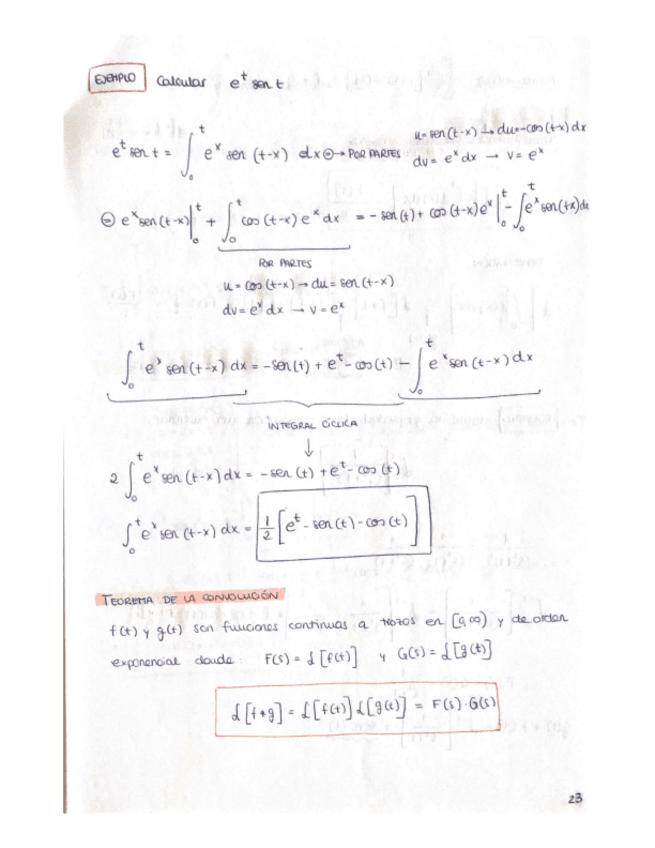 EJEMPLO Calcular e^t sen t
e^t sen t = ∫_0^t e^x sen (t-x) dx ⊖→ POR PARTES u = sen (t-x) → du = -cos (t-x) dx
dv = e^x dx → v = e^x
⊖ e^x sen (t-x)|_0^t + ∫_0^t cos (t-x) e^x dx = - sen (t) + cos (t-x) e^x |_0^t - ∫_0^t e^x sen (t-x) dx
POR PARTES
u = cos (t-x) → du = sen (t-x)
dv = e^x dx → v = e^x
∫_0^t e^x sen (t-x) dx = - sen (t) + e^t - cos (t) - ∫_0^t e^x sen (t-x) dx
INTEGRAL CÍCLICA
↓
2 ∫_0^t e^x sen (t-x) dx = - sen (t) + e^t - cos (t)
∫_0^t e^x sen (t-x) dx = 1/2 [e^t - sen (t) - cos (t)]
TEOREMA DE LA CONVOLUCIÓN
f(t) y g(t) son funciones continuas a trozos en [0,∞) y de orden
exponencial donde: F(s) = ℒ[f(t)] y G(s) = ℒ[g(t)]
ℒ[f*g] = ℒ[f(t)] ℒ[g(t)] = F(s)·G(s)
23